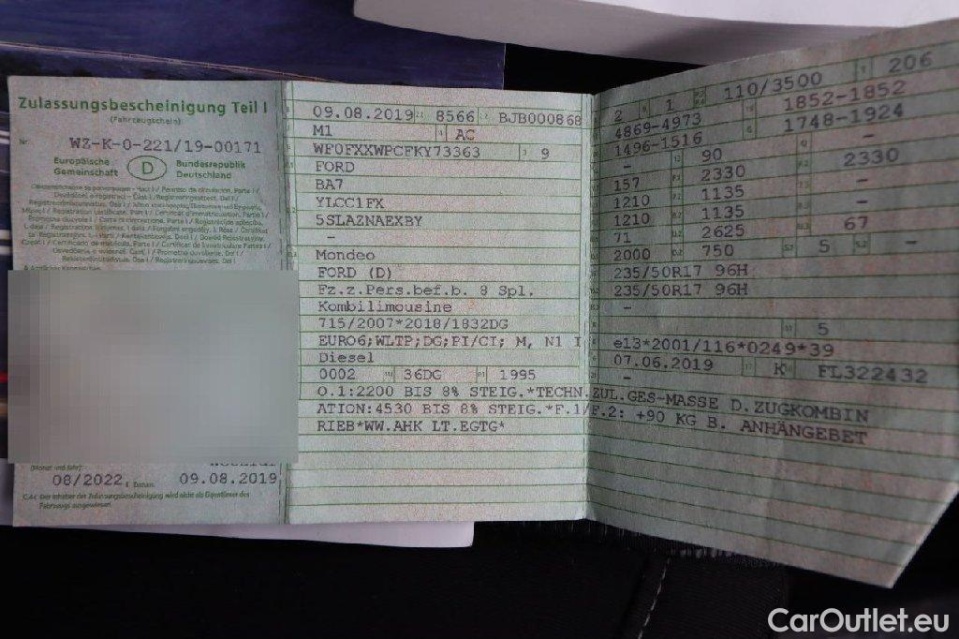 Zulassungsbescheinigung Teil I
(Fahrzeugschein)
Nr. WZ-K-0-221/19-00171
Europäische Gemeinschaft D Bundesrepublik Deutschland
08/2022 09.08.2019
09.08.2019 8566 BJB000868
M1 AC
WF0FXXWPCFKY73363 9
FORD
BA7
YLCC1FX
5SLAZNAEXBY
–
Mondeo
FORD (D)
Fz.z.Pers.bef.b. 8 Spl.
Kombilimousine
715/2007*2018/1832DG
EURO6;WLTP;DG;PI/CI; M, N1 I
Diesel
0002 36DG 1995
2 1 110/3500 206
4869-4973 1852-1852
1496-1516 1748-1924
– 90 –
157 2330 2330
1210 1135
1210 1135
71 2625 67
2000 750 5 –
235/50R17 96H
235/50R17 96H
–
5
e13*2001/116*0249*39
07.06.2019 K FL322432
–
O.1:2200 BIS 8% STEIG.*TECHN.ZUL.GES-MASSE D.ZUGKOMBIN
ATION:4530 BIS 8% STEIG.*F.1/F.2: +90 KG B. ANHÄNGEBET
RIEB*WW.AHK LT.EGTG*
CarOutlet.eu